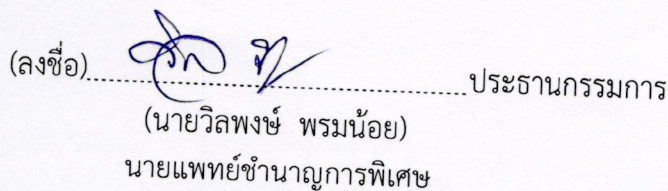 (ลงชื่อ)........................................ประธานกรรมการ
(นายวิลพงษ์ พรมน้อย)
นายแพทย์ชำนาญการพิเศษ